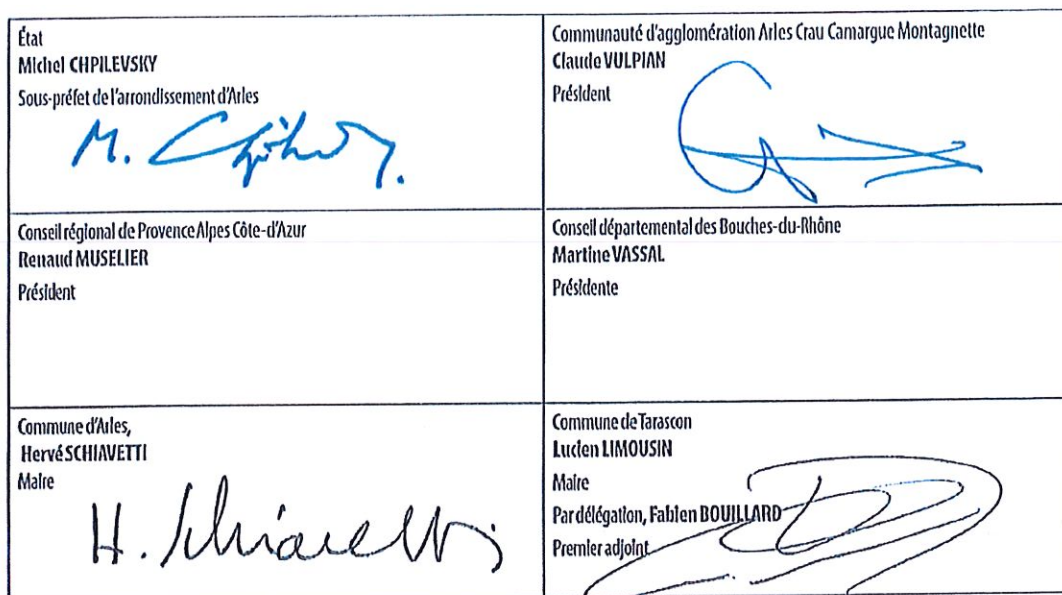 État
Michel CHPILEVSKY
Sous-préfet de l'arrondissement d'Arles
M.
Communauté d'agglomération Arles Crau Camargue Montagnette
Claude VULPIAN
Président
Conseil régional de Provence Alpes Côte-d'Azur
Renaud MUSELIER
Président
Conseil départemental des Bouches-du-Rhône
Martine VASSAL
Présidente
Commune d'Arles,
Hervé SCHIAVETTI
Maire
H. Schiavetti
Commune de Tarascon
Lucien LIMOUSIN
Maire
Par délégation, Fabien BOUILLARD
Premier adjoint